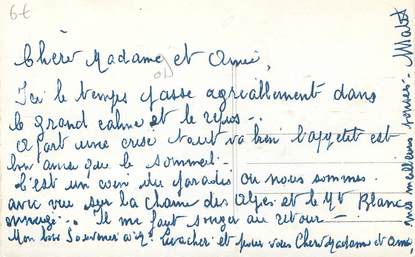 6€
Chère Madame et Amie,
Ici le temps passe agréablement dans
le grand calme et le repos -
à part une crise tout va bien l'appétit est
bon ainsi que le sommeil -
C'est un coin du paradis où nous sommes
avec vue sur la chaîne des Alpes et le Mt Blanc
neigeux - Il me faut songer au retour -
Mon bon Souvenir à et pour vous Chère Madame et Amie,
mes meilleures pensées -